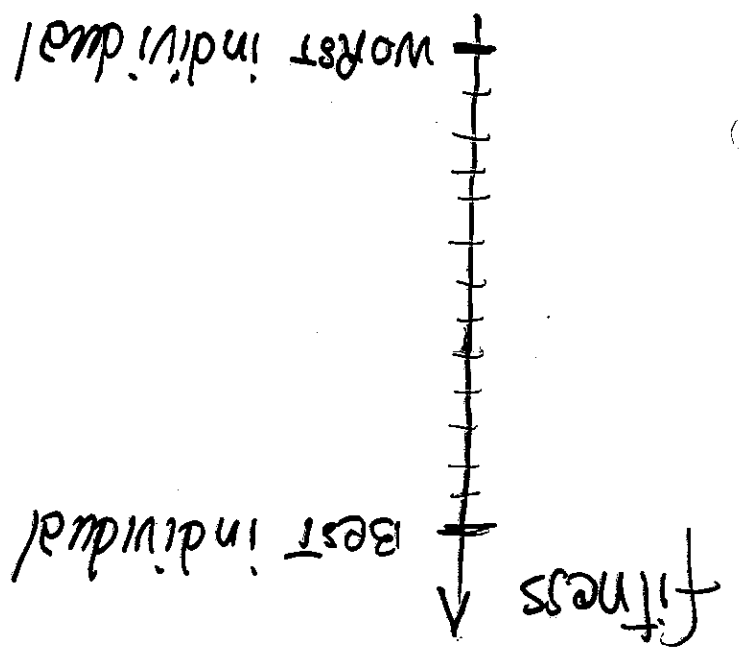 fitness
Best individual
worst individual